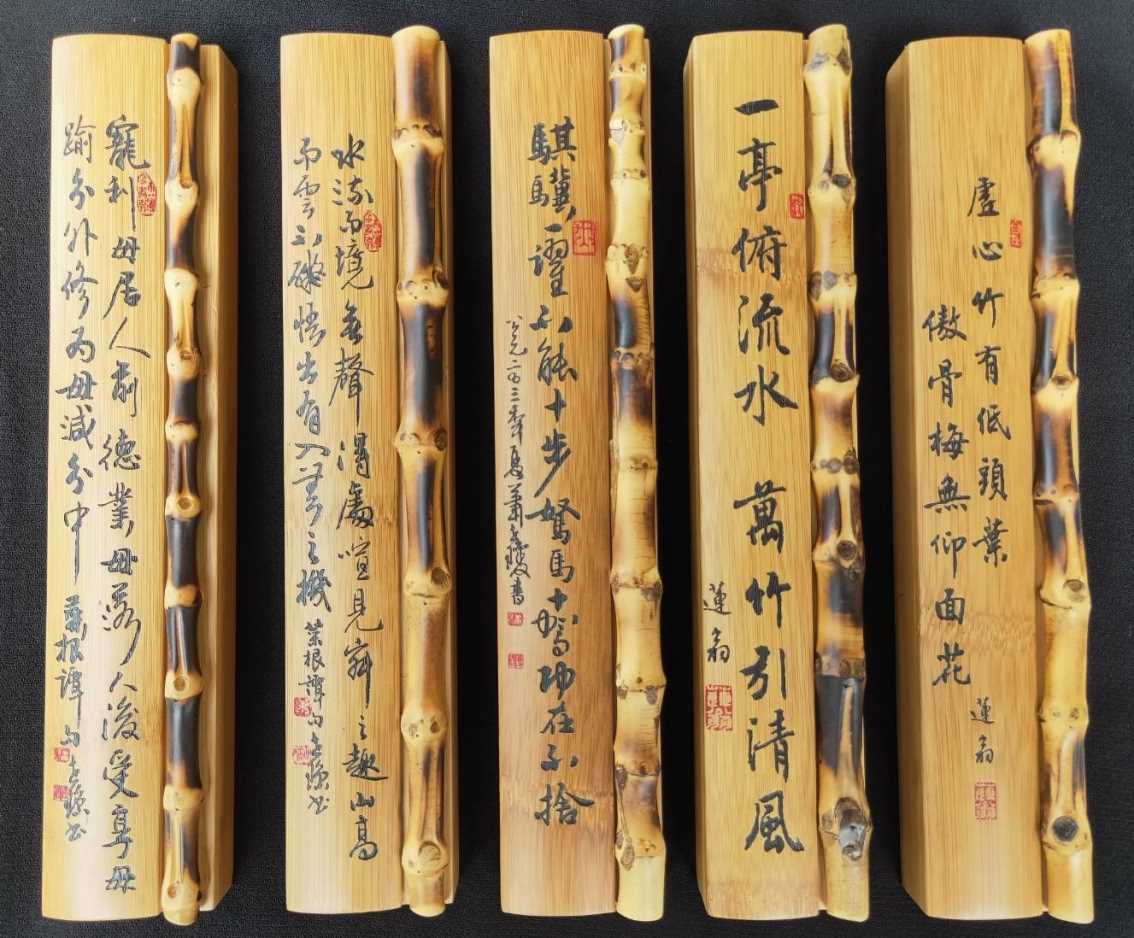 寵利毋居人前德業毋落人後受享毋
踰分外修為毋減分中 菜根譚句
水流而境無聲得處喧見寂之趣山高
而雲不礙悟出有入無之機 菜根譚句
騏驥一躍不能十步駑馬十駕功在不捨
一亭俯流水 萬竹引清風
蓮翁
虛心竹有低頭葉
傲骨梅無仰面花
蓮翁